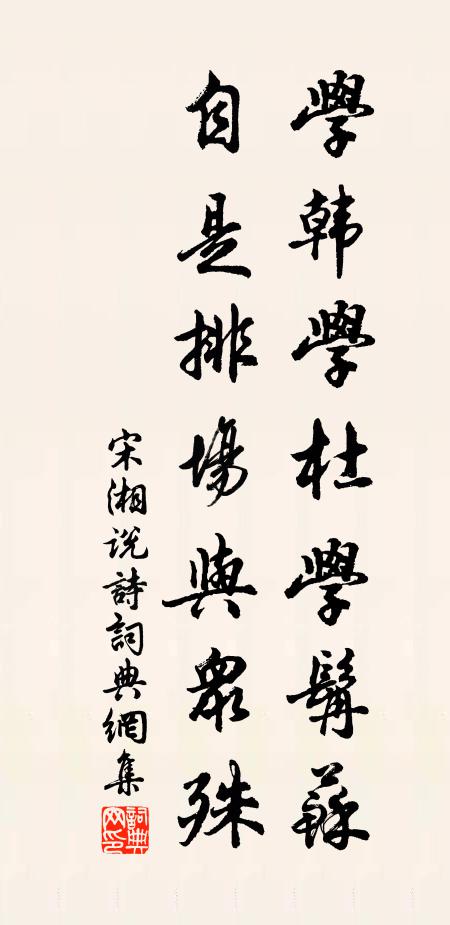 學韩學杜學髯蘇
自是排場與眾殊
宋湘说詩詞典網集
詞典網印